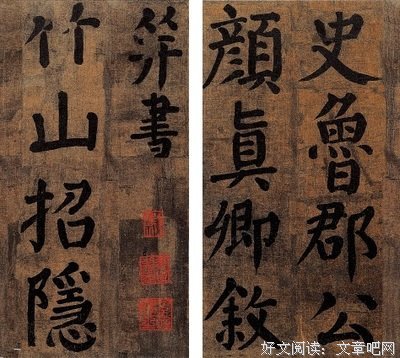 史魯郡公
顏眞卿敘
并書
竹山招隱
好文阅读：文章吧网